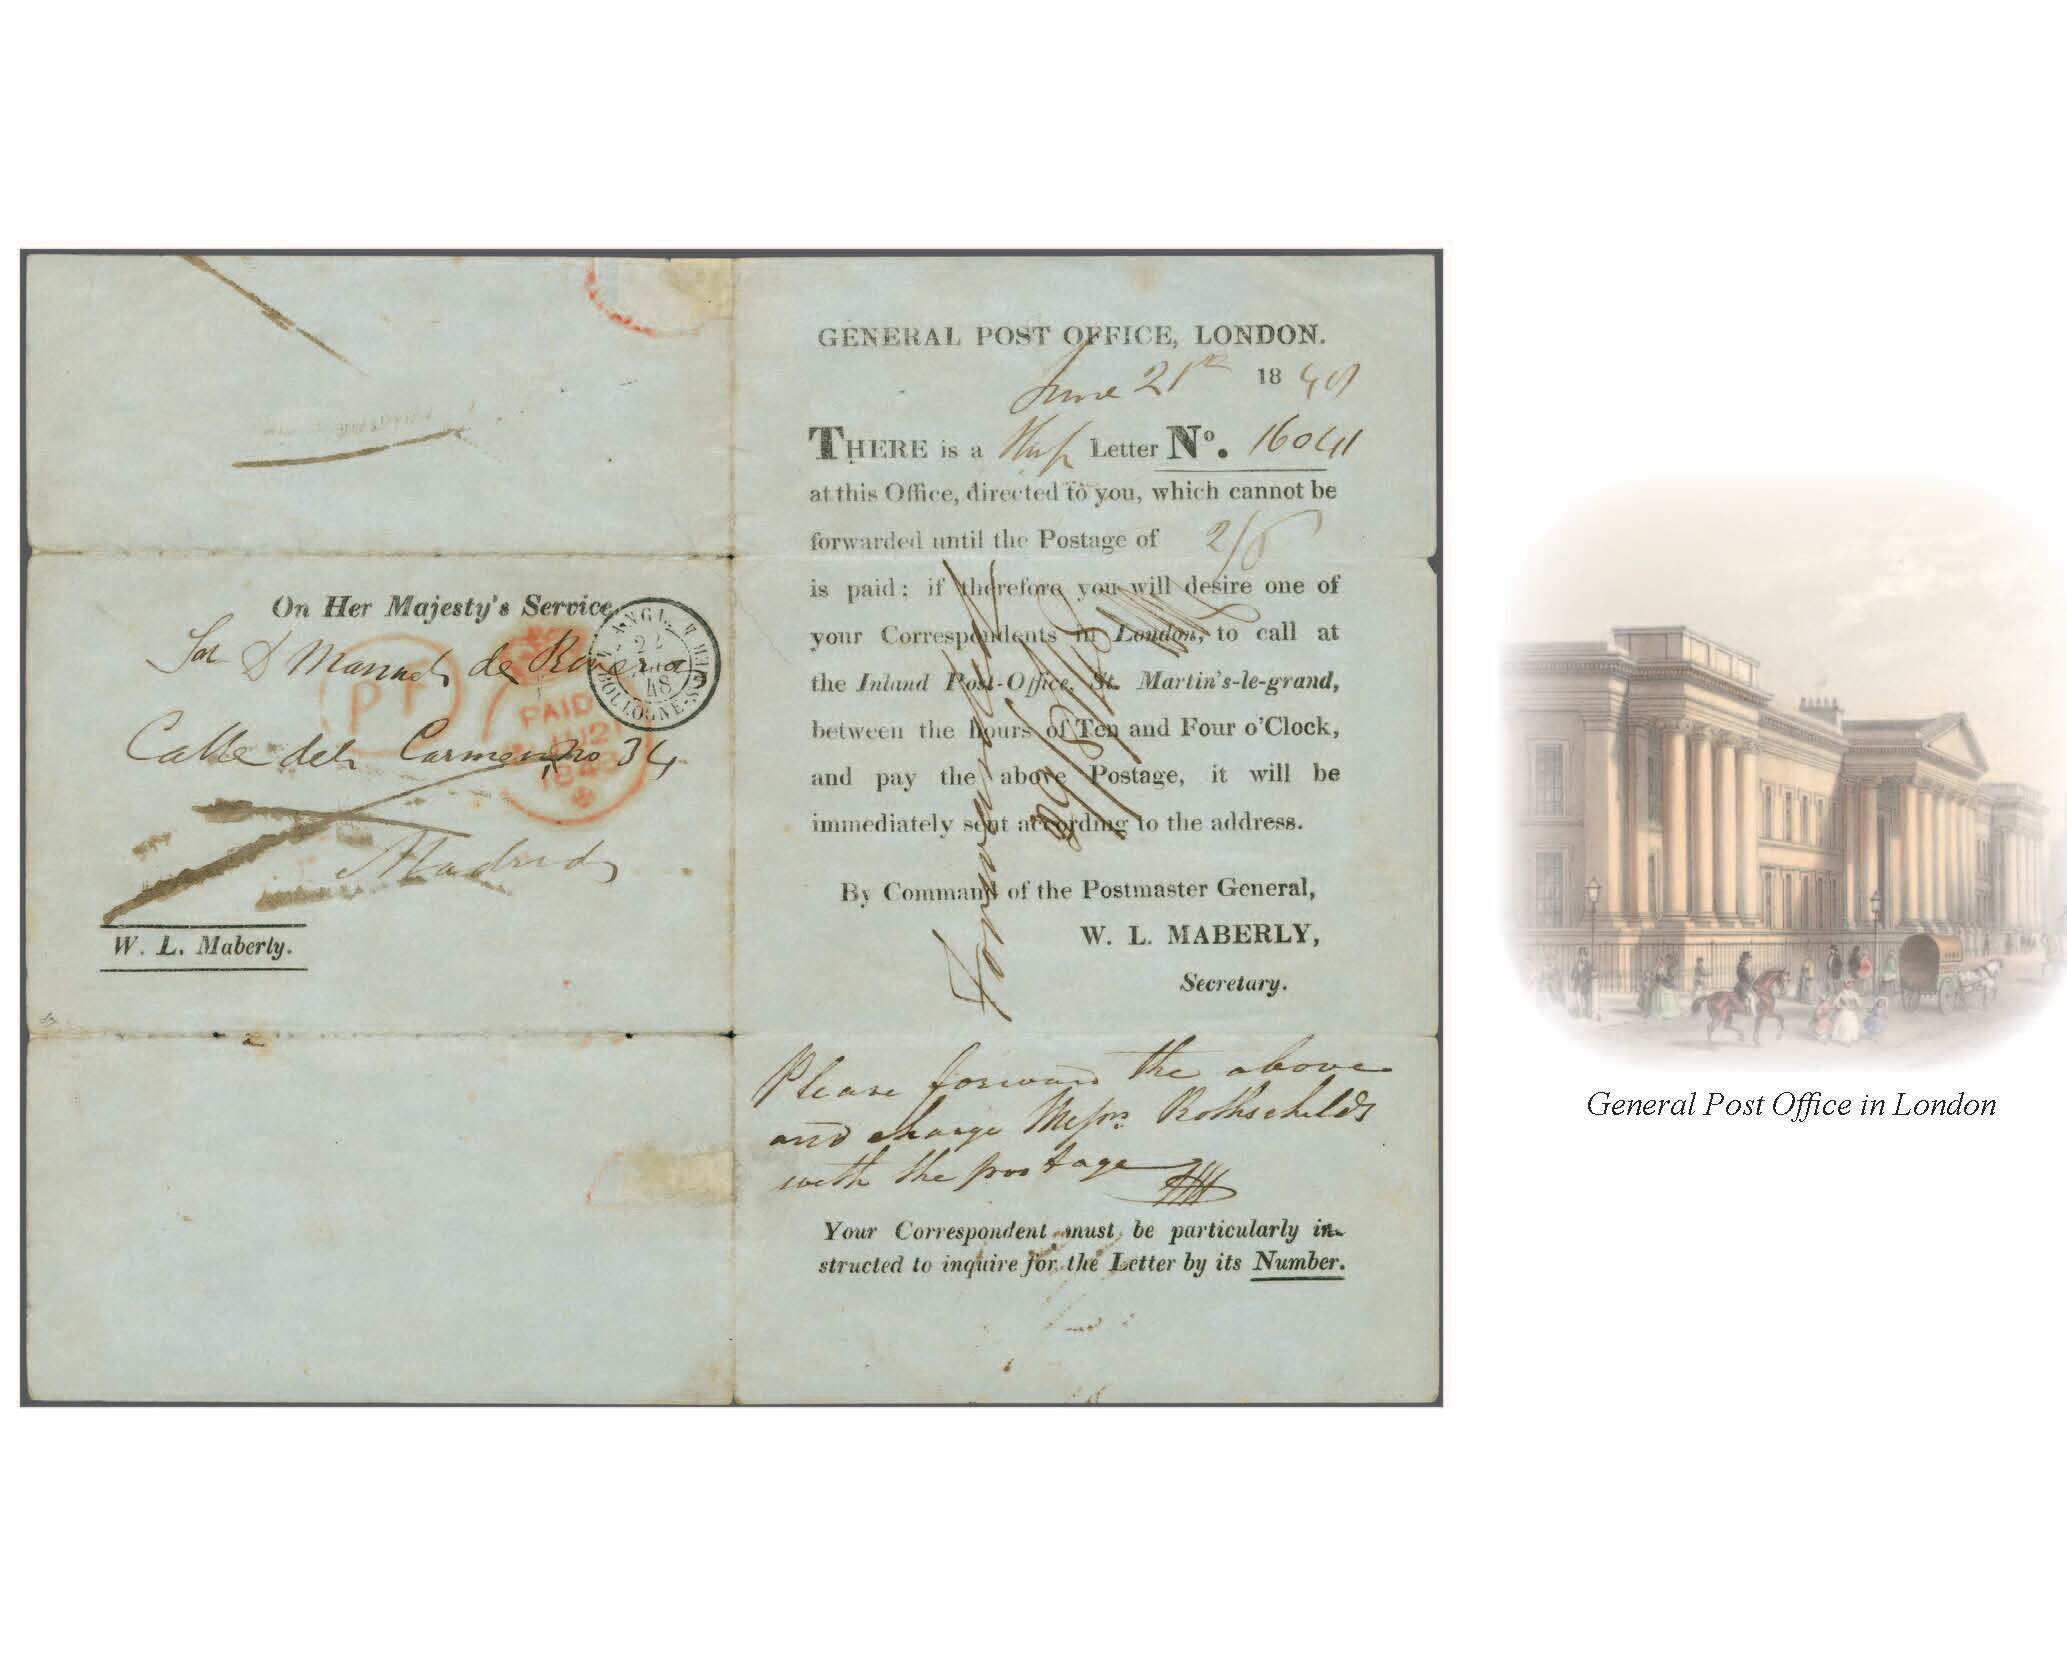 On Her Majesty's Service
Sor D Manuel de Rivera
Calle del Carmen no 34
Madrid
W. L. Maberly.
PT
PAID
21
1848
ANGL.
22
48
BOULOGNE-S-MER
GENERAL POST OFFICE, LONDON.
June 21st 1848
THERE is a Letter No. 16041
at this Office, directed to you, which cannot be
forwarded until the Postage of 2/
is paid; if therefore you will desire one of
your Correspondents in London, to call at
the Inland Post-Office, St. Martin's-le-grand,
between the hours of Ten and Four o'Clock,
and pay the above Postage, it will be
immediately sent according to the address.
By Command of the Postmaster General,
W. L. MABERLY,
Secretary.
Forwarded
Please forward the above
and charge Messrs Rothschilds
with the postage
Your Correspondent must be particularly in-
structed to inquire for the Letter by its Number.
General Post Office in London